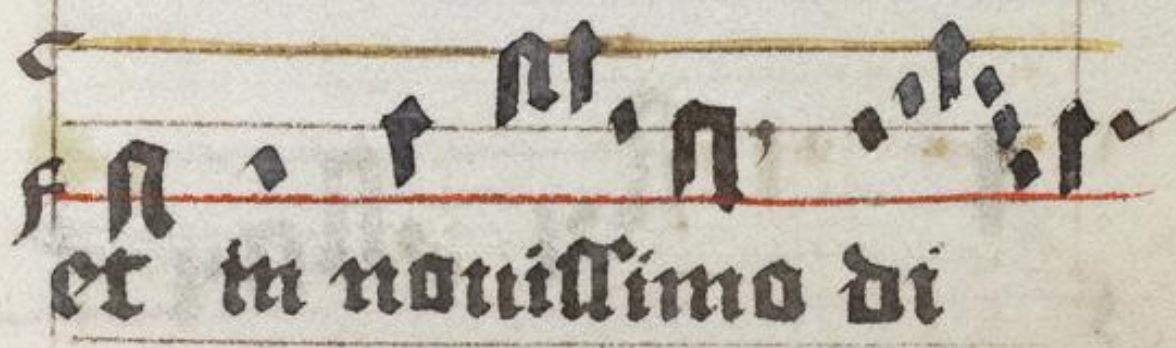 et in nouissimo di